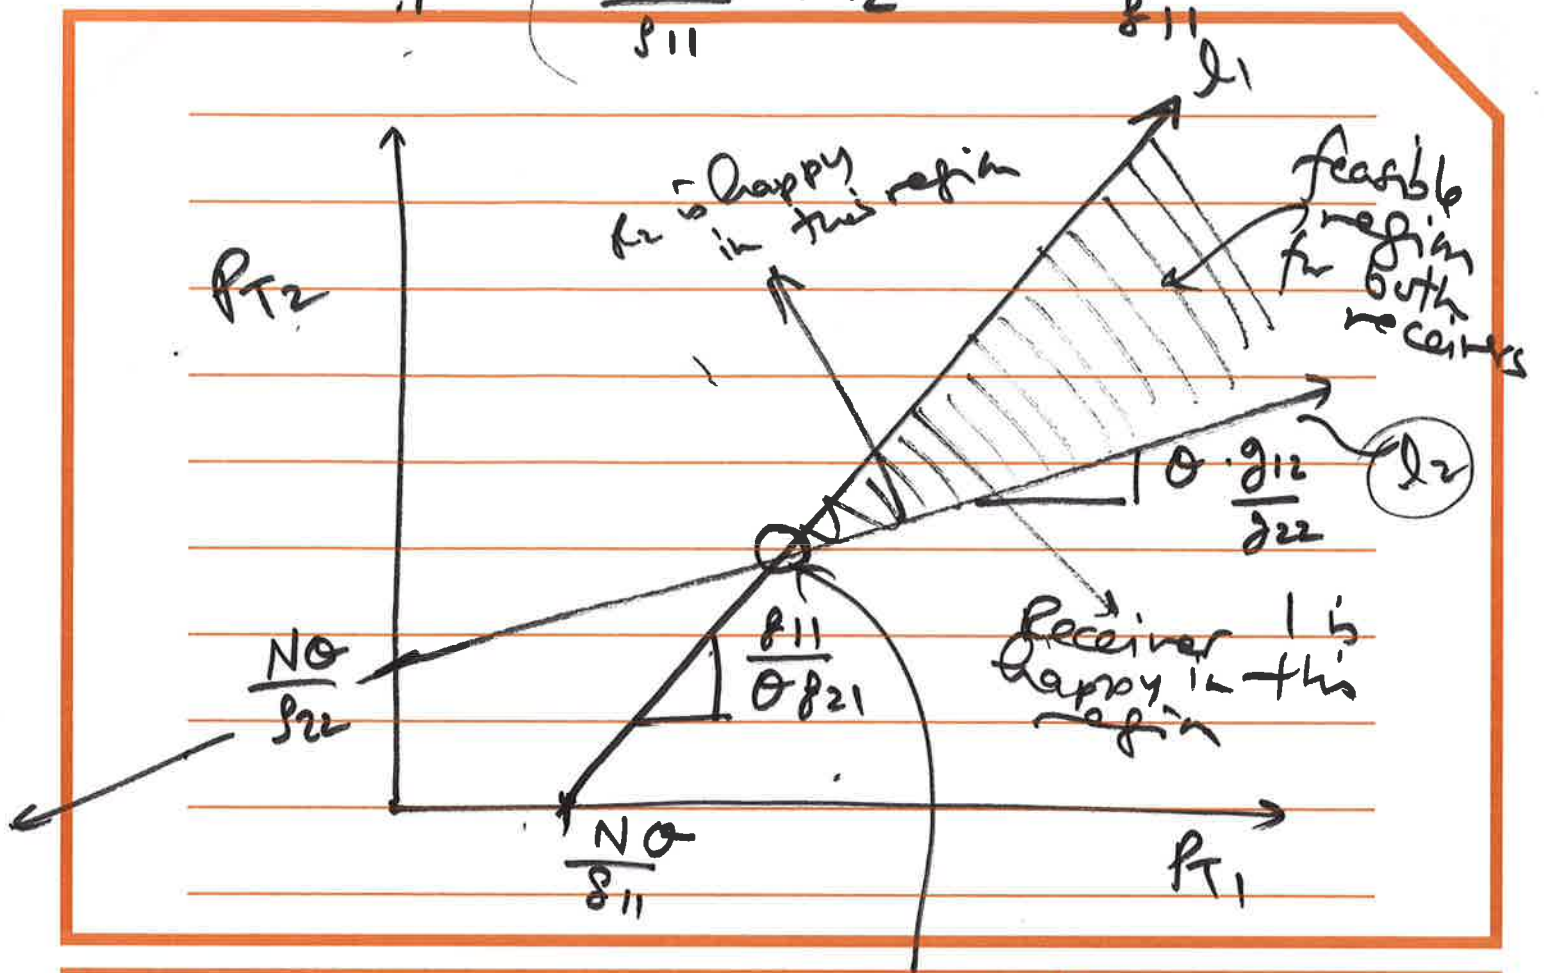 g11
g11
l1
R2 is happy
in this region
feasible
region
for both
receivers
PT2
l2
θ · g12
g22
Nθ
g22
g11
θ g21
Receiver 1 is
happy in this
region
Nθ
g11
PT1